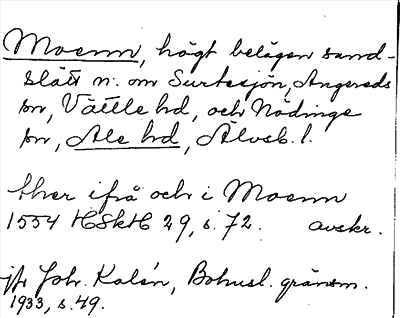 Moenn, högt belägen sand-
slätt n. om Surtesjön, Angereds
sn, Vättle hd, och Nödinge
sn, Ale hd, Älvsb. l.
ther ifrå och i Moenn
1554 HSkH 29, s. 72. avskr.
jfr Joh. Kalén, Bohusl. gränsm.
1933, s. 49.